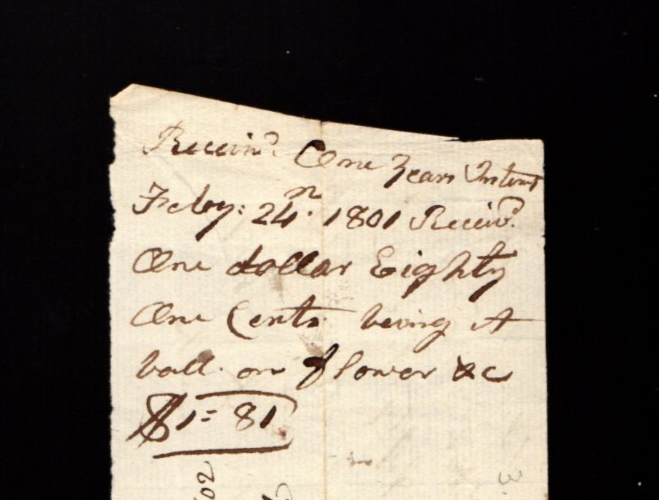 Receivd. One Years Intrest
Feby: 24n. 1801 Receivd.
One dollar Eighty
One Cents being A
ball. on flower &c
$1=81
02
3